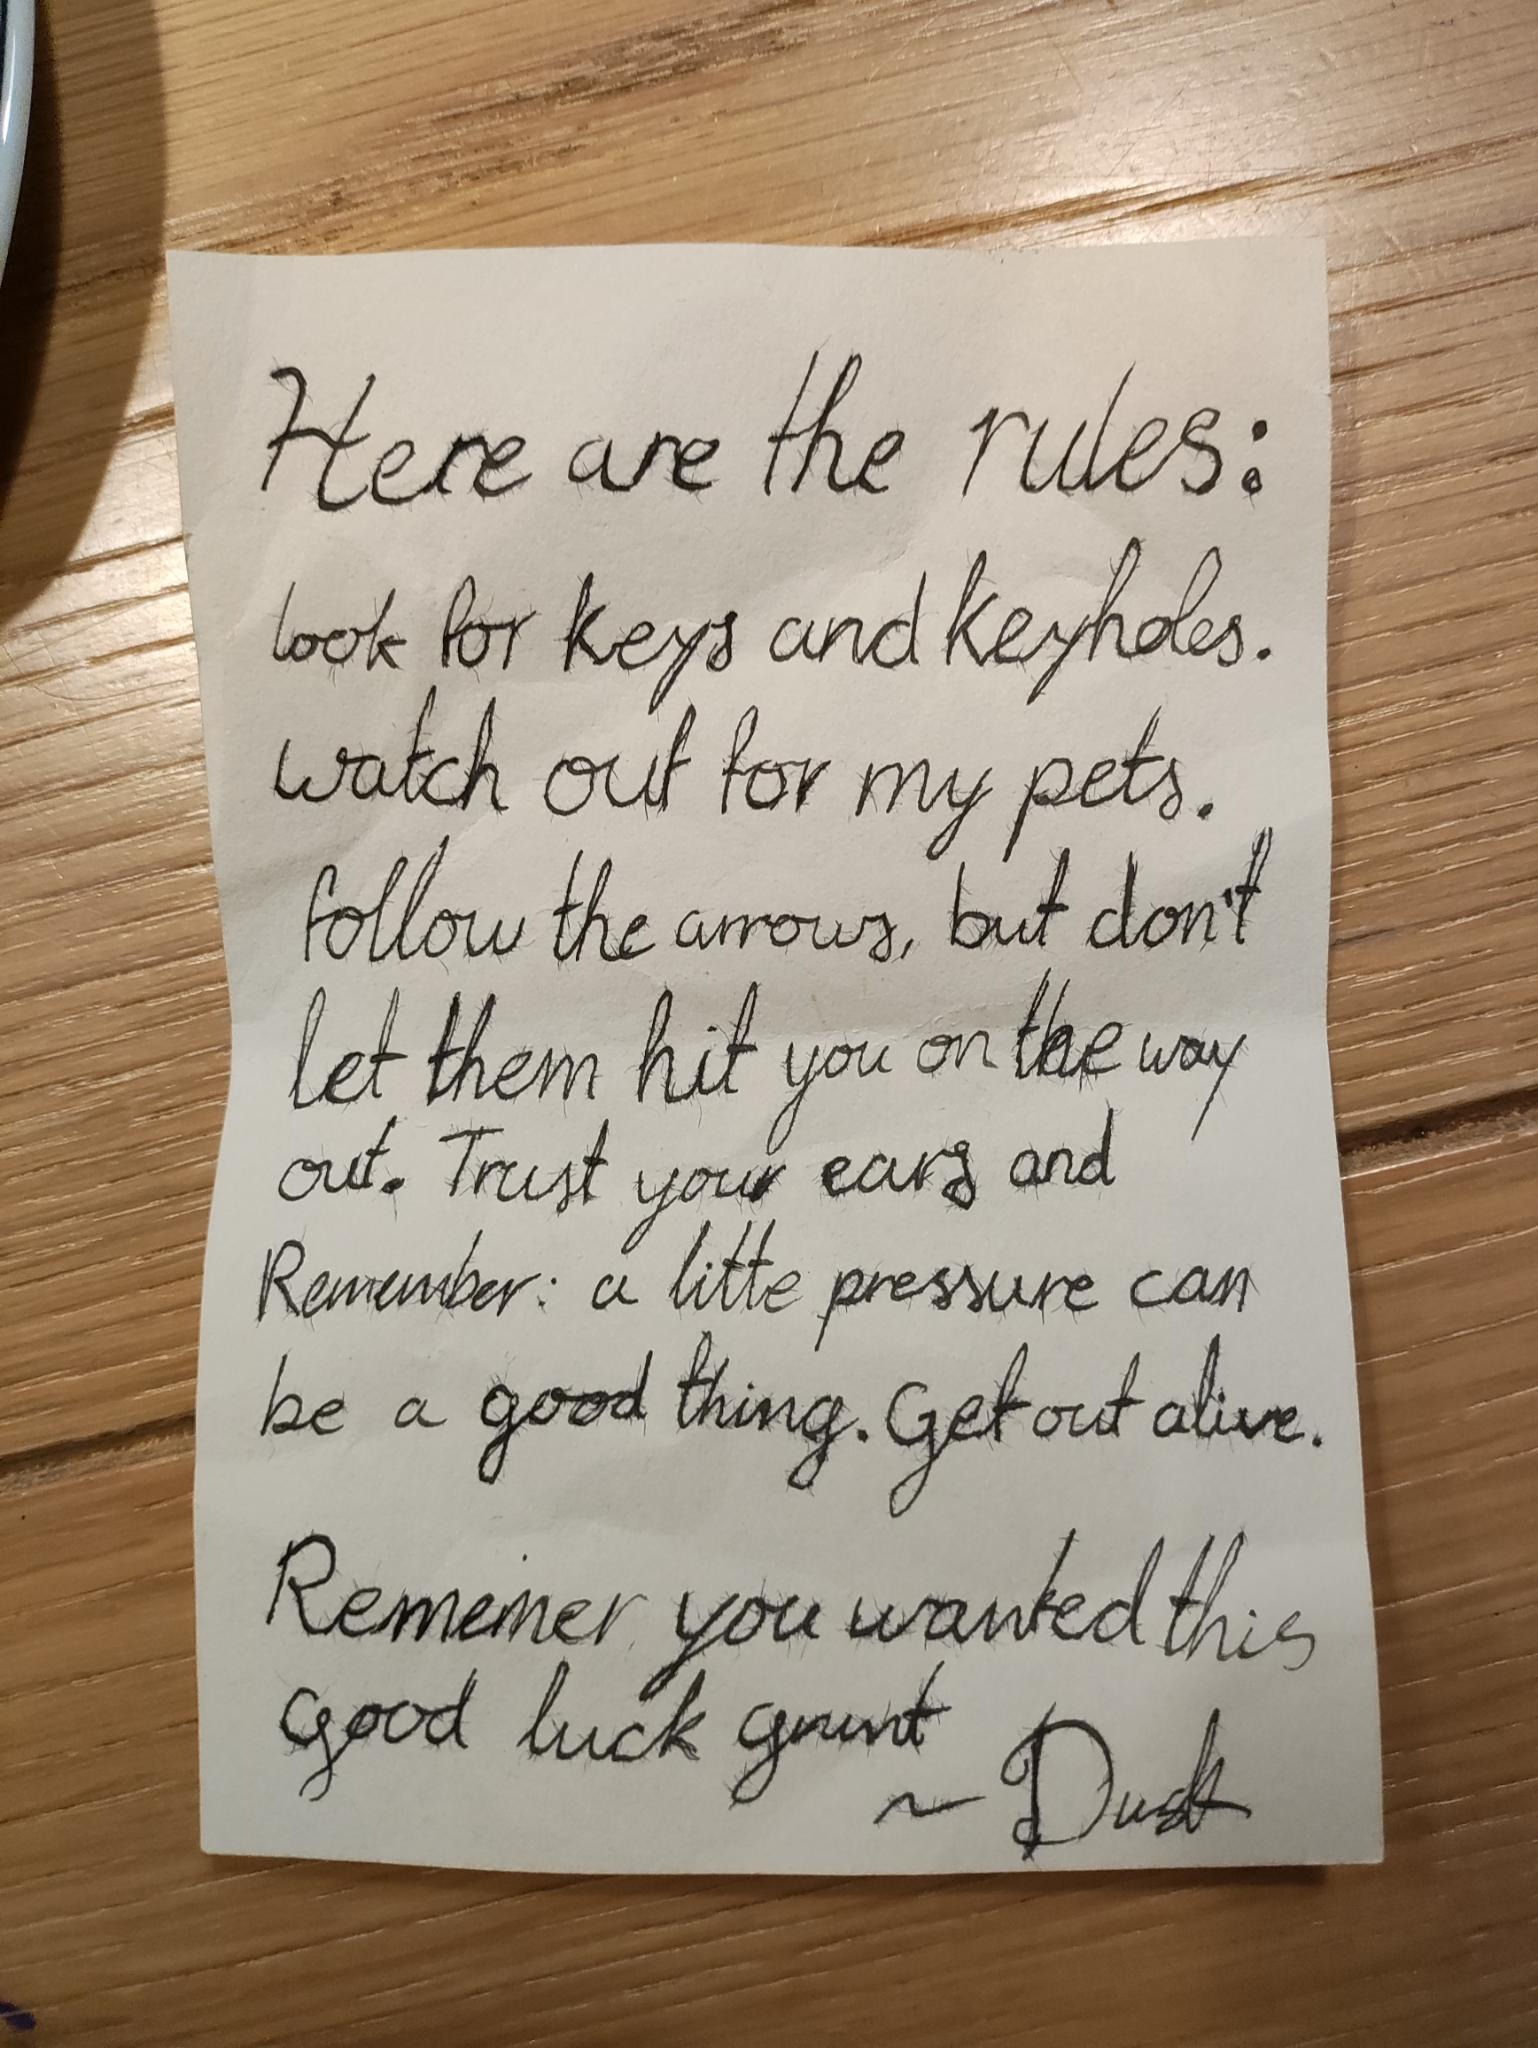 Here are the rules:
look for keys and keyholes.
watch out for my pets.
follow the arrows, but don't
let them hit you on the way
out. Trust your ears and
Remember: a litte pressure can
be a good thing. Get out alive.
Rememer you wanted this
good luck grunt
~ Dusk